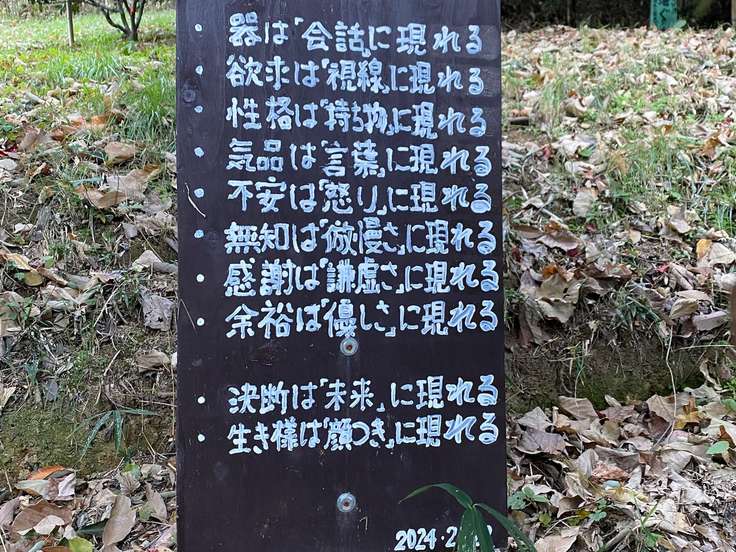 ・器は「会話」に現れる
・欲求は「視線」に現れる
・性格は「持ち物」に現れる
・気品は「言葉」に現れる
・不安は「怒り」に現れる
・無知は「傲慢さ」に現れる
・感謝は「謙虚さ」に現れる
・余裕は「優しさ」に現れる
・決断は「未来」に現れる
・生き様は「顔つき」に現れる
2024・2